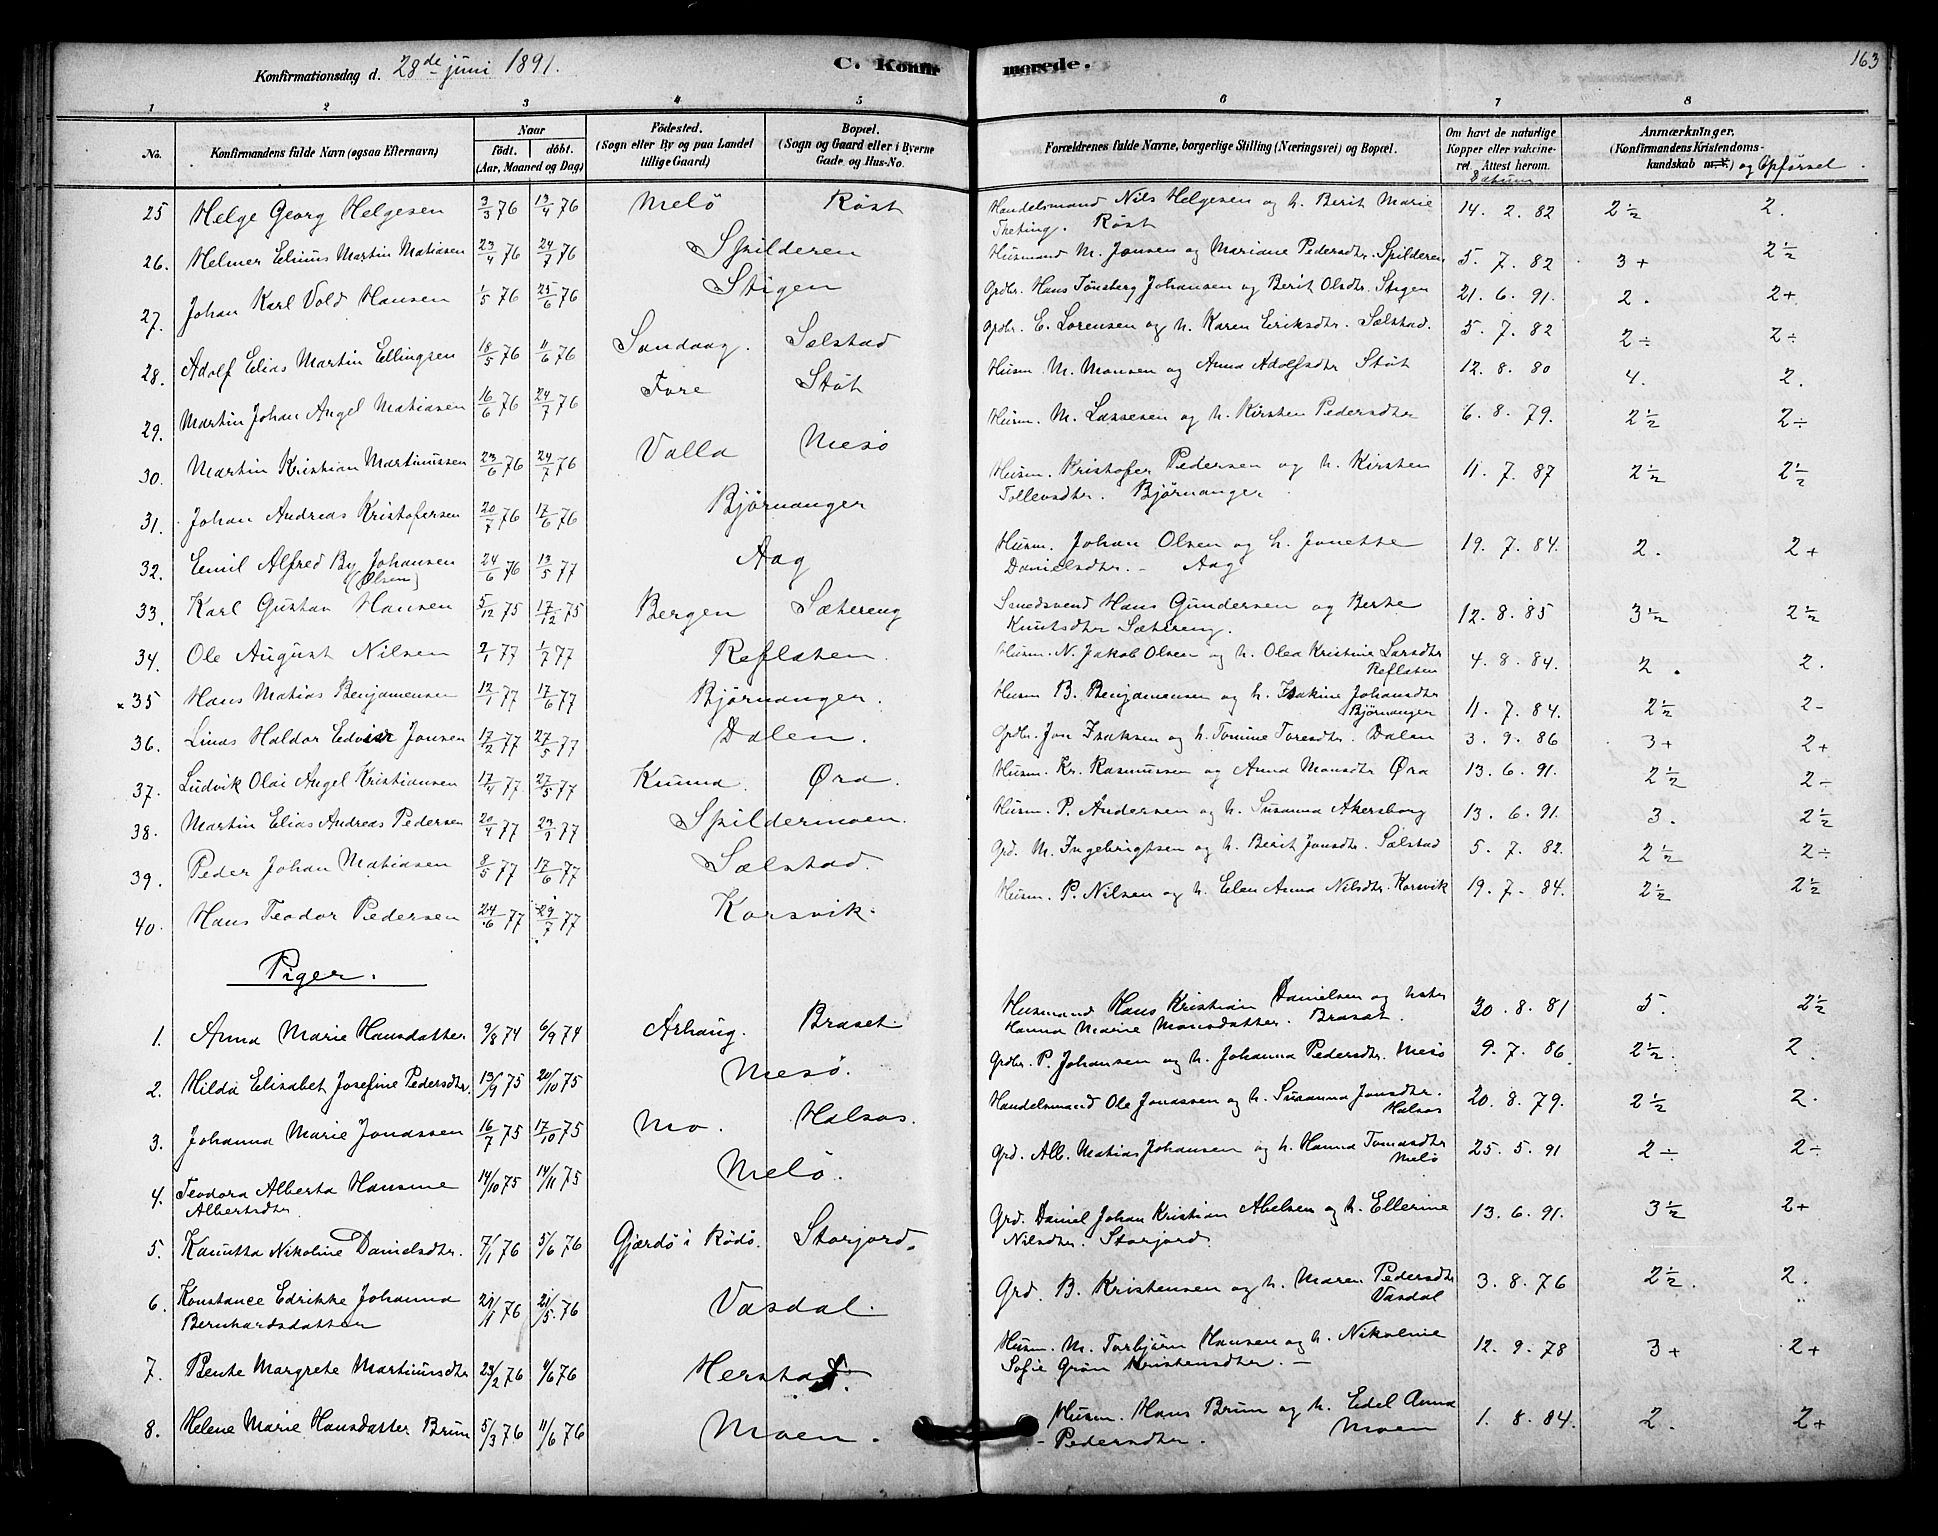 Konfirmationsdag d. 28de juni 1891.
C. Konfirmerede.
163
1 2 3 4 5 6 7 8
No. Konfirmandens fulde Navn (ogsaa Efternavn) Naar født. døbt. (Aar, Maaned og Dag) Fødested. (Sogn eller By og paa Landet tillige Gaard) Bopæl. (Sogn og Gaard eller i Byerne Gade og Hus-No. Forældrenes fulde Navne, borgerlige Stilling (Næringsvei) og Bopæl. Om havt de naturlige Kopper eller vakcineret. Attest herom. Datum Anmærkninger, (Konfirmandens Kristendomskundskab m.v.) og Opførsel.
25 Helge Georg Helgesen 3/3 76 13/4 76 Melö Röst Handelsmand Nils Helgesen og h. Berit Marie Theting. Röst 14. 2. 82 2½ 2.
26. Helmer Elinus Martin Matiasen 23/4 76 24/7 76 Spilderen Husmand M. Jonsen og Mariane Pedersdtr. Spilderen 5. 7. 82 3+ 2½
27. Johan Karl Vold Hansen 1/5 76 25/6 76 Stigen Grdbr. Hans Tönsberg Johansen og Berit Olsdtr. Stigen 21. 6. 91. 2. 2+
28. Adolf Elias Martin Ellingsen 18/5 76 11/6 76 Sandaag. Sælstad Grdbr. E. Lorensen og h. Karen Eriksdtr. Sælstad. 5. 7. 82 2÷ 2÷
29. Martin Johan Angel Matiasen 16/6 76 24/7 76 Fore Stöt Husm. M. Monsen og Anna Adolfsdtr Stöt 12. 8. 80 4. 2.
30. Martin Kristian Martinussen 23/6 76 24/7 76 Valla Mesö Husm. M. Lassesen og h. Kirsten Pedersdtr 6. 8. 79. 2½ 2÷
31. Johan Andreas Kristofersen 20/7 76 17/6 76 Björnanger Husm. Kristofer Pedersen og h. Kirsten Tollevsdtr. Björnanger. 11. 7. 87 2½ 2½
32. Emil Alfred By Johansen (Olsen) 24/6 76 13/5 77 Aag Husm. Johan Olsen og h. Jonette Danielsdtr. – Aag 19. 7. 84. 2. 2+
33. Karl Gustav Hansen 5/12 75 17/12 75 Bergen Sætereng Smedsvend Hans Gundersen og Berte Knutsdtr Sætereng. 12. 8. 85 3½ 2½
34. Ole August Nilsen 2/1 77 1/7 77 Reflaten. Husm. N. Jakob Olsen og h. Olea Kristine Larsdtr Reflaten 4. 8. 84. 2. 2.
x 35 Hans Matias Benjamensen 12/1 77 17/6 77 Björnanger. Husm B. Benjamensen og h. Isakine Johansdtr Björnanger 11. 7. 84. 2½ 2-
36. Linas Haldor Edvier Jonsen 17/2 77 27/5 77 Dalen. Grdbr. Jon Isaksen og h. Tomine Toresdtr. Dalen 3. 9. 86 3+ 2+
37. Ludvik Olai Angel Kristiansen 17/4 77 27/5 77 Kunna. Øra. Husm. Kr. Rasmussen og Anna Monsdtr Øra 13. 6. 91. 2½ 2-
38. Martin Elias Andreas Pedersen 20/4 77 77 Spildermoen. Husm. P. Andersen og h. Susanna Akersborg 13. 6. 91. 3. 2½
39. Peder Johan Matiasen 8/5 77 17/6 77 Sælstad. Grd. M. Ingebrigtsen og h. Berit Jonsdtr. Sælstad 5. 7. 82. 2½ 2÷
40. Hans Teodor Pedersen 24/6 77 29/7 77 Korsvik. Husm. P. Nilsen og h. Elen Anna Nilsdtr. Korsvik 19. 7. 84. 2½ 2½
Piger.
1. Anna Marie Hansdatter 9/8 74 6/9 74 Arhaug. Braset. Husmand Hans Kristian Danielsen og Hanna Marie Monsdatter. Braset. 30. 8. 81 5. 2½
2. Hilda Elisabet Josefine Pedersdtr. 13/9 75 20/10 75 Mesö. Grdbr. P. Johansen og h. Johanna Pedersdtr. Mesö 9. 7. 86. 2½. 2.
3. Johanna Marie Jonassen 16/7 75 17/10 75 Mo. Halsos. Handelsmand Ole Jonassen og h. Susanna Jonsdtr. Halsos 20. 8. 79. 2½ 2.
4. Teodora Alberta Hansine Albertsdtr 14/10 75 14/11 75 Melö. Grd. Alb. Matias Johansen og h. Hanna Tomasdtr Melö 25. 5. 91 2÷ 2÷
5. Kanutta Nikoline Danielsdtr. 7/1 76 5/6 76 Gjærdö i Rödö. Storjord. Grd. Daniel Johan Kristian Abelsen og h. Ellerine Nilsdtr. Storjord. 13. 6. 91. 3½ 2+
6. Konstance Edrikke Johanna Bernhardsdatter 76 21/5 76 Vasdal. Grd. B. Kristensen og h. Maren Pedersdtr Vasdal 3. 8. 76 2½. 2.
7. Bente Margrete Martinusdtr 23/2 76 76 Herstad. Husm. M. Torbjörn Hansen og h. Nikoline Sofie Grøn Kristensdtr. – 12. 9. 78 3+ 2+
8. Helene Marie Hansdatter Brun 5/3 76 11/6 76 Moen. Husm. Hans Brun og h. Edel Anna Pedersdtr. Moen 1. 8. 84. 2. 2+